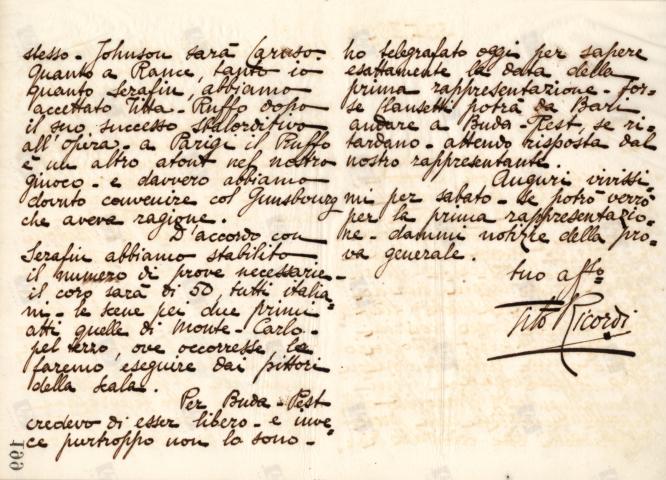 stesso - Johnson sarà Caruso.
Quanto a Rance, tanto io
quanto Serafin, abbiamo
accettato Titta-Ruffo dopo
il suo successo sbalorditivo
all'Opéra - a Parigi il Ruffo
è un altro atout nel nostro
giuoco - e davvero abbiamo
dovuto convenire col Gunsbourg
che aveva ragione.
D'accordo con
Serafin abbiamo stabilito
il numero di prove necessarie -
il coro sarà di 50, tutti italia
ni - le scene pei due primi
atti quelle di Monte-Carlo -
pel terzo, ove occorresse le
faremo eseguire dai pittori
della Scala.
Per Buda-Pest
credevo di esser libero - e inve
ce purtroppo non lo sono -
199
ho telegrafato oggi per sapere
esattamente la data della
prima rappresentazione - for
se Clausetti potrà da Bari
andare a Buda-Pest, se ri
tardano - attendo risposta dal
nostro rappresentante.
Auguri vivissi
mi per sabato - se potrò verrò
per la prima rappresentazio
ne - dammi notizie della pro
va generale.
tuo affo
Tito Ricordi